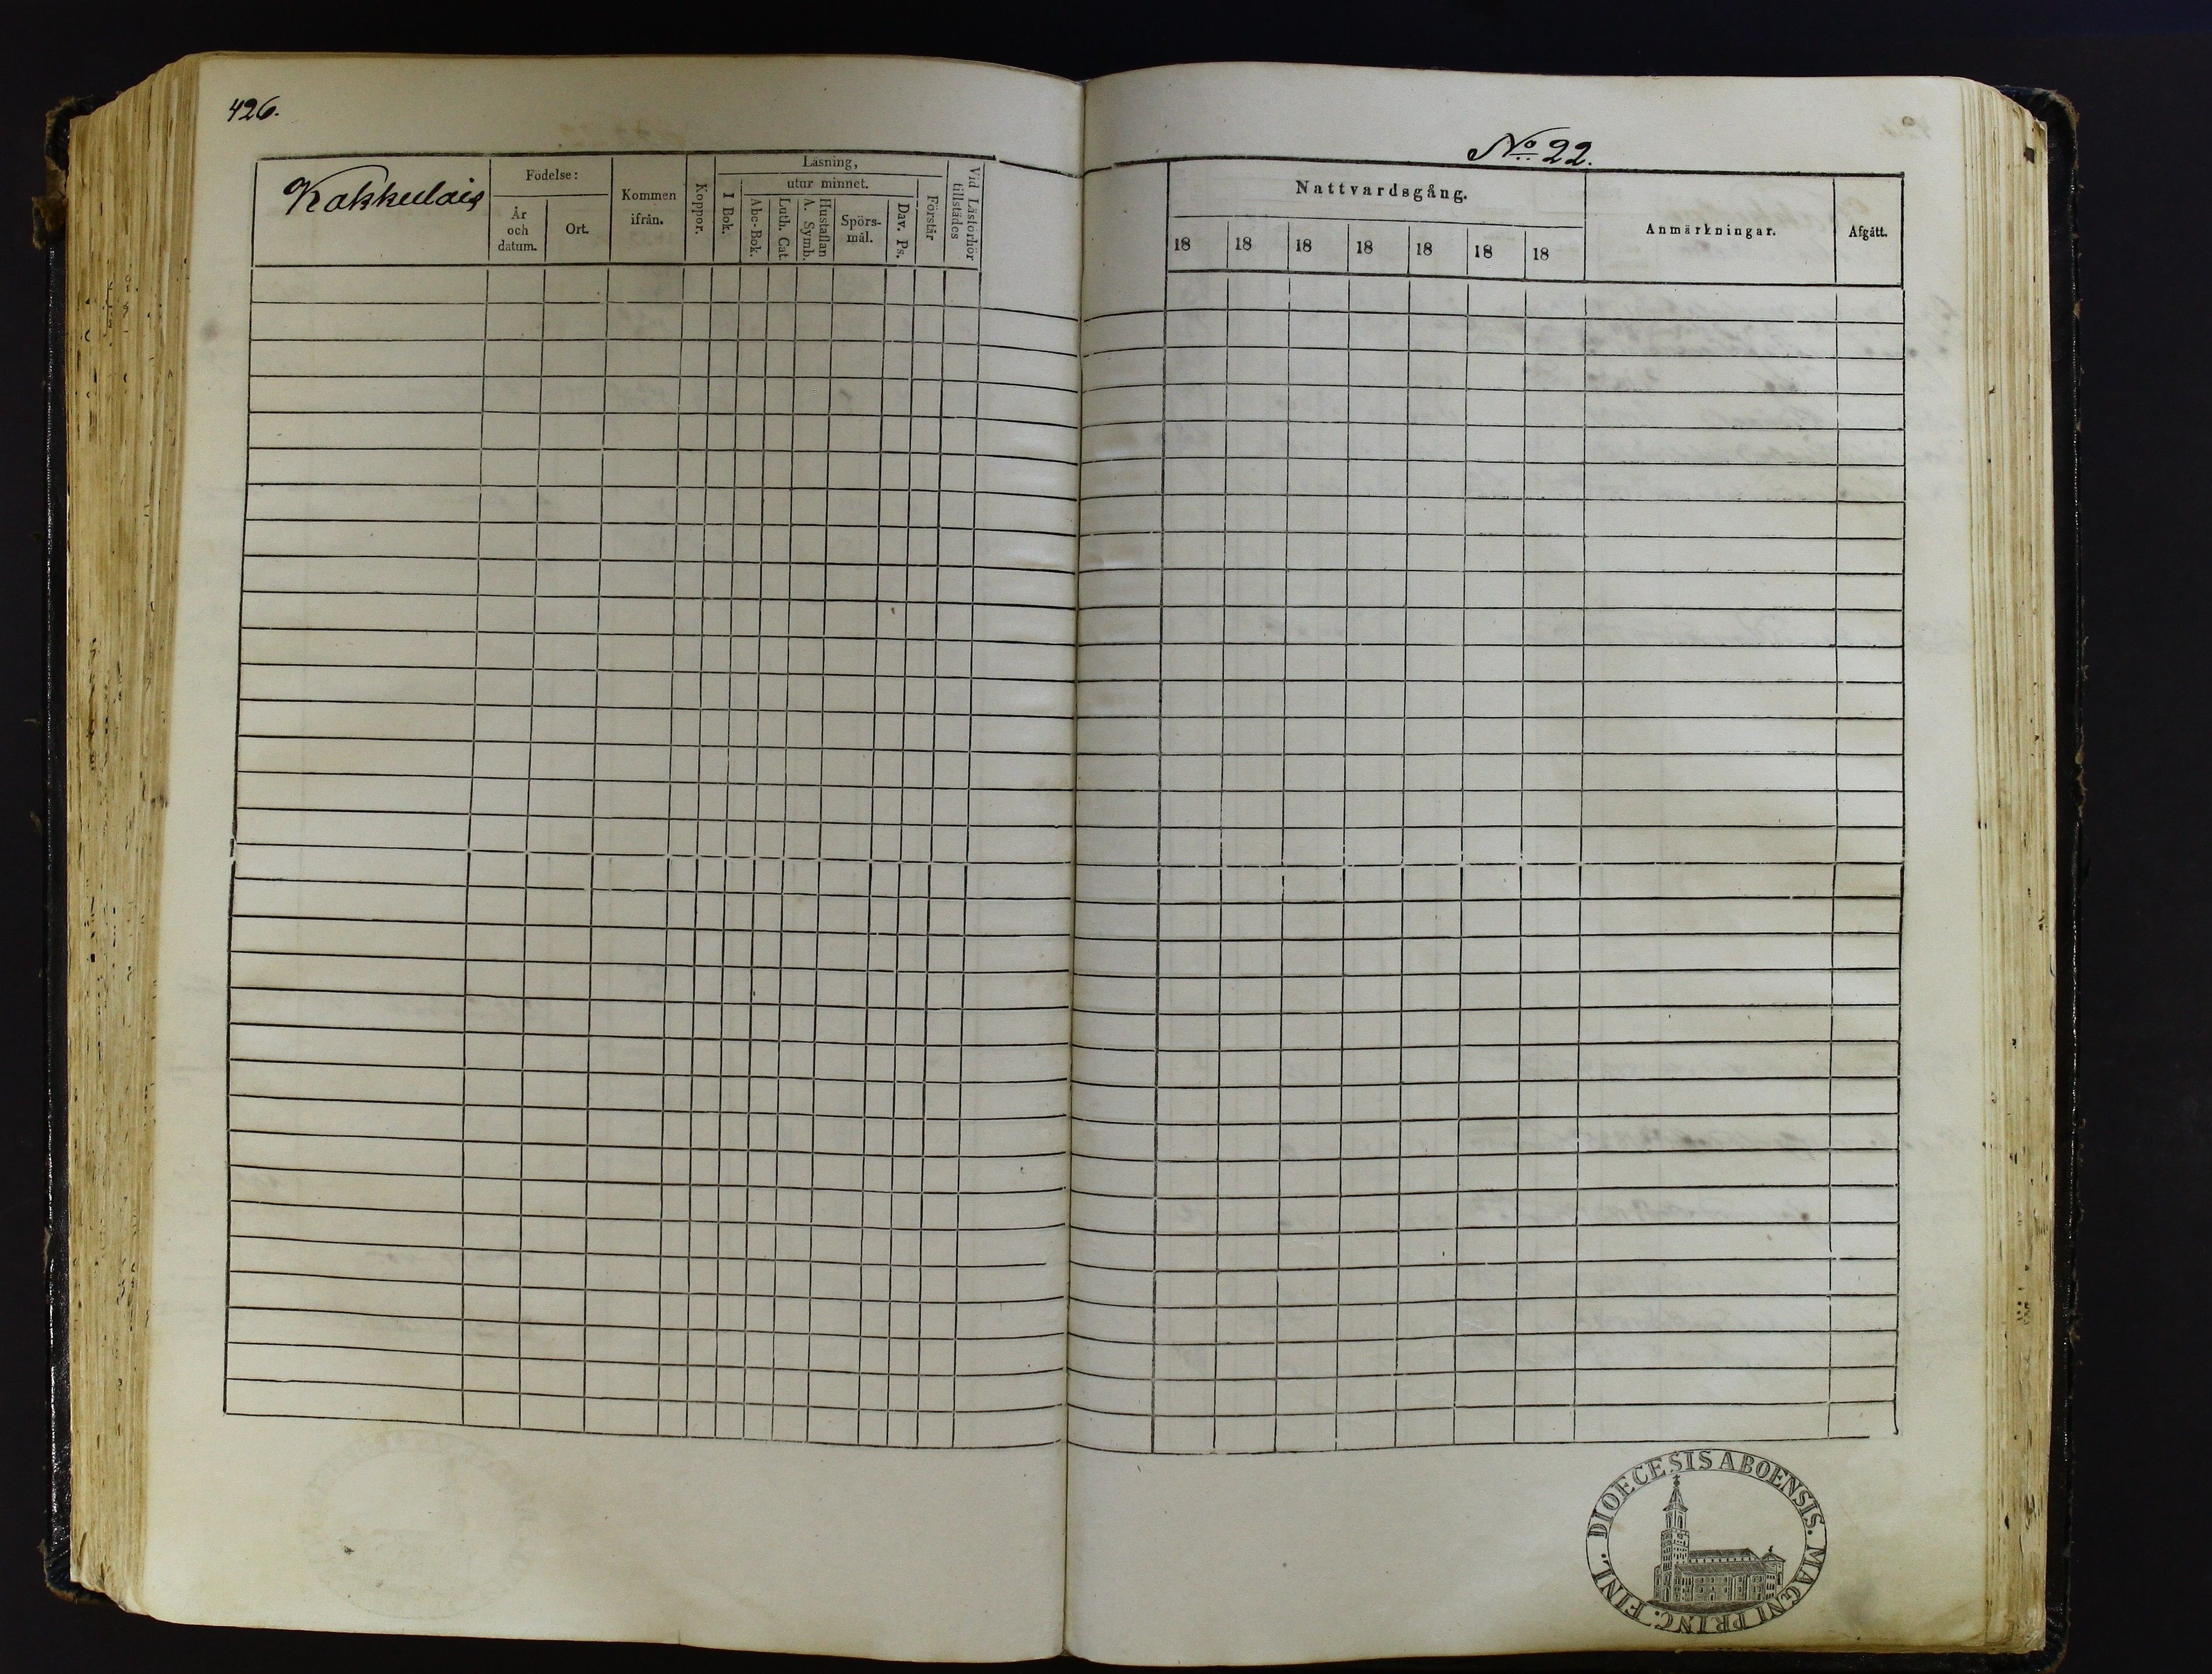 426.
No 22.
Kakkulais
Födelse:
År
och
datum.
Ort.
Kommen
ifrån.
Koppor.
Läsning,
I Bok.
utur minnet.
Abc-Bok.
Luth. Cat.
Hustaflan
A. Symb.
Spörs-
mål.
Dav. Ps.
Förstår
Vid Läsförhör
tillstädes
Nattvardsgång.
18 18 18 18 18 18 18
Anmärkningar.
Afgått.
DIOECESIS ABOENSIS. MAGNI PRINC. FINL.